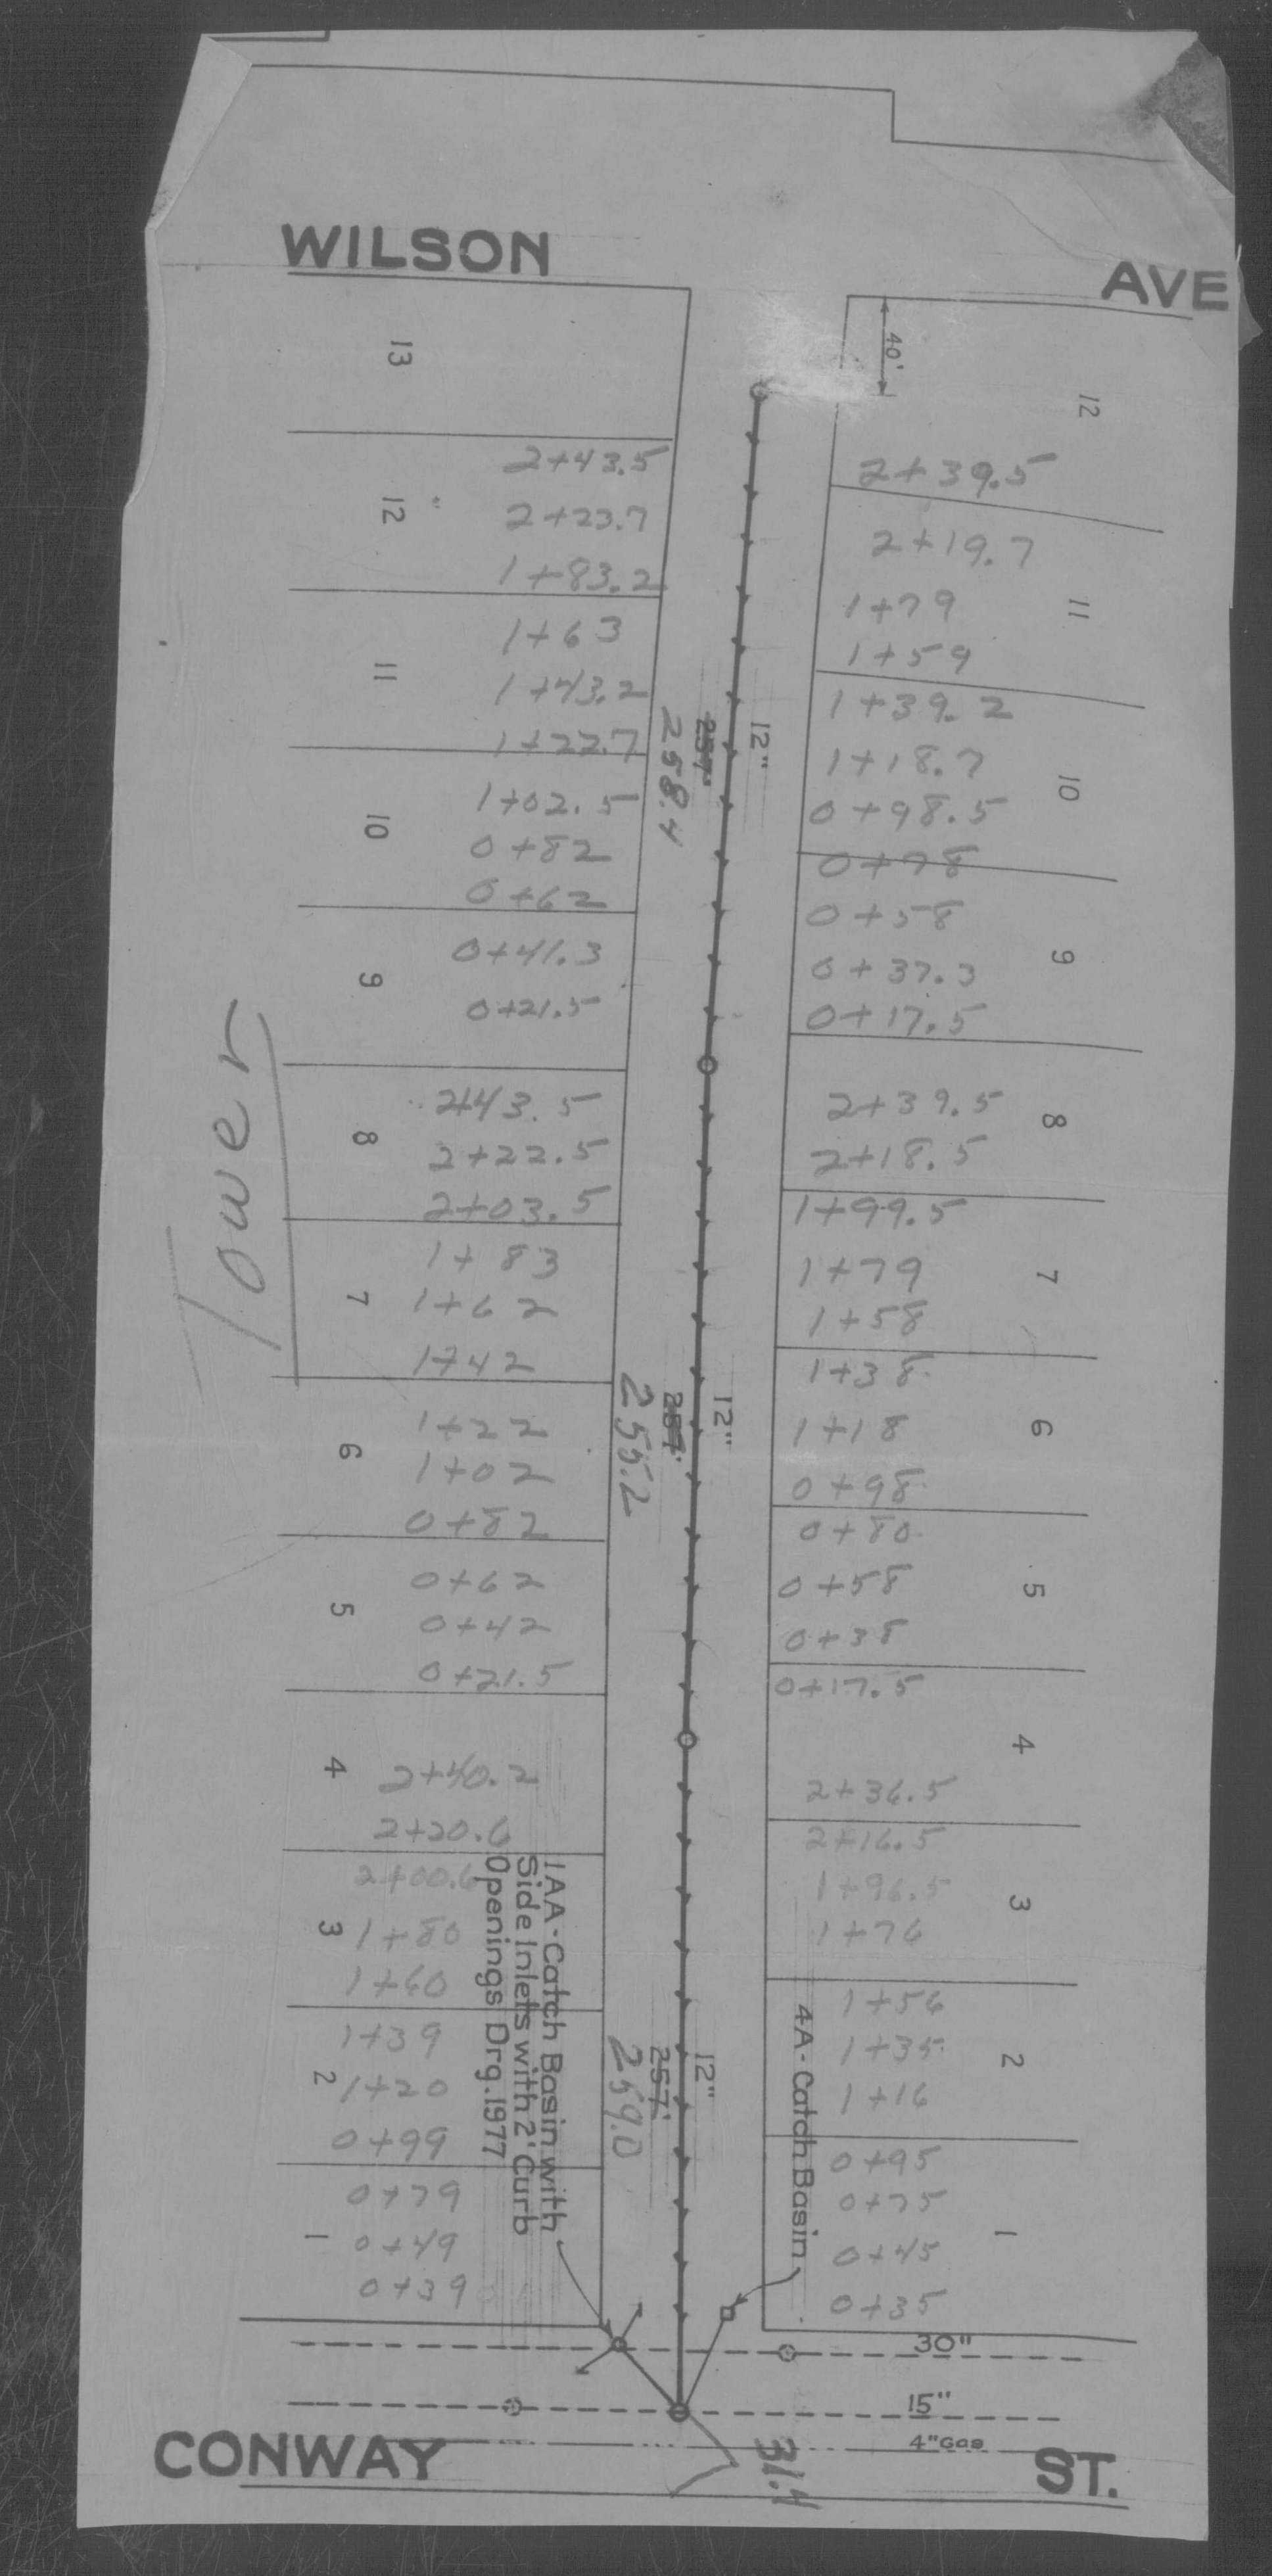 WILSON
AVE
40'
13
12
2+43.5
2+39.5
12
2+23.7
2+19.7
1+83.2
1+79
11
1+63
1+59
11
1+43.2
1+39.2
1+22.7
1+18.7
12"
257'
258.4
10
1+02.5
0+98.5
10
0+82
0+78
0+62
0+58
9
0+41.3
0+37.3
9
0+21.5
0+17.5
Tower
8
2+43.5
2+39.5
8
2+22.5
2+18.5
2+03.5
1+99.5
7
1+83
1+79
7
1+62
1+58
1+42
1+38
12"
257'
255.2
6
1+22
1+18
6
1+02
0+98
0+82
0+80
5
0+62
0+58
5
0+42
0+38
0+21.5
0+17.5
4
2+40.2
2+36.5
4
2+20.6
2+16.5
3
2+00.6
1+96.5
3
1+80
1+76
1+60
1+56
2
1+39
1+35
2
1+20
1+16
0+99
0+95
12"
257'
259.0
1
0+79
0+75
1
0+49
0+45
0+39
0+35
1AA-Catch Basin with
Side Inlets with 2' Curb
Openings Drg. 1977
4A-Catch Basin
30"
15"
4" Gas
31.4
CONWAY
ST.